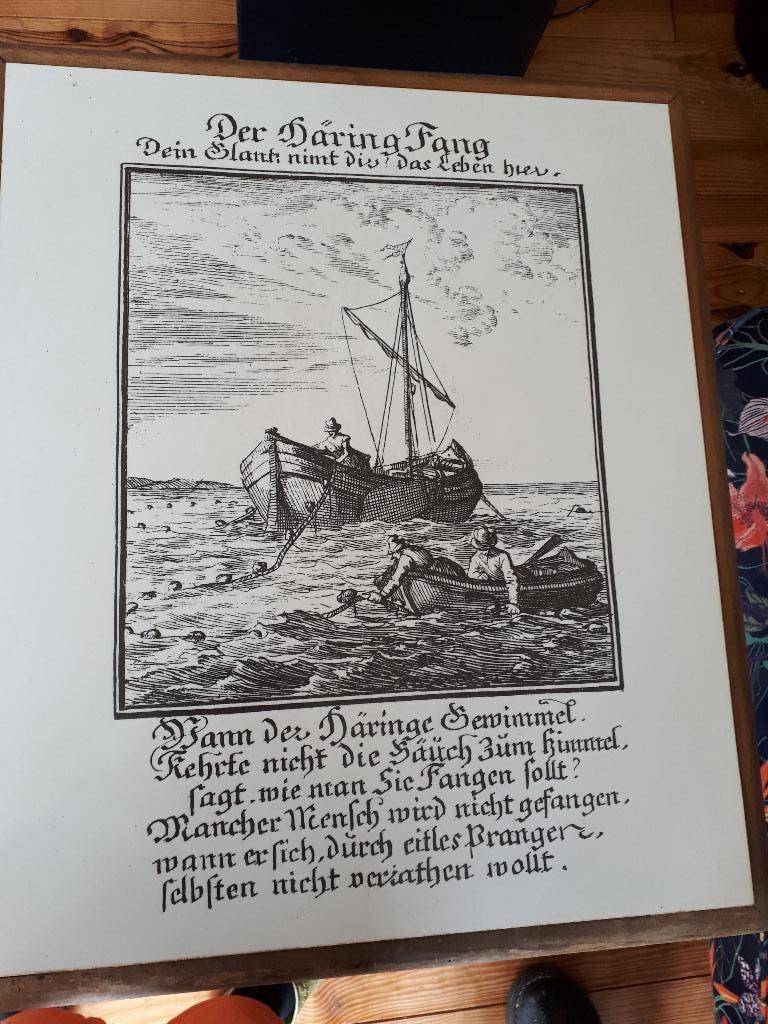 Der Häring Fang
Dein Glantz nimt dir das Leben hier.
Wann der Häringe Gewimmel.
Kehrte nicht die Bäuch zum Himmel,
sagt. wie man Sie Fangen sollt?
Mancher Mensch wird nicht gefangen,
wann er sich, durch eitles Prangen,
selbsten nicht verrathen wollt.